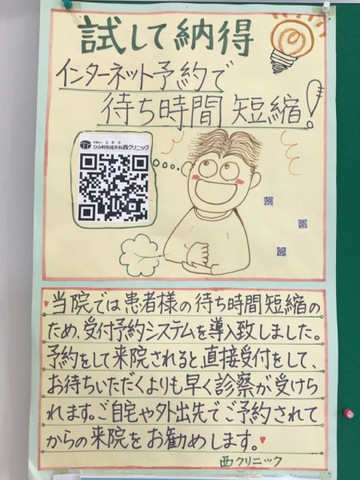 試して納得
インターネット予約で
待ち時間短縮!
西クリニック
当院では患者様の待ち時間短縮の
ため、受付予約システムを導入致しました。
予約をして来院されると、直接受付をして、
お待ちいただくよりも早く診察が受けら
れます。ご自宅や外出先でご予約されて
からの来院をお勧めします。
西クリニック